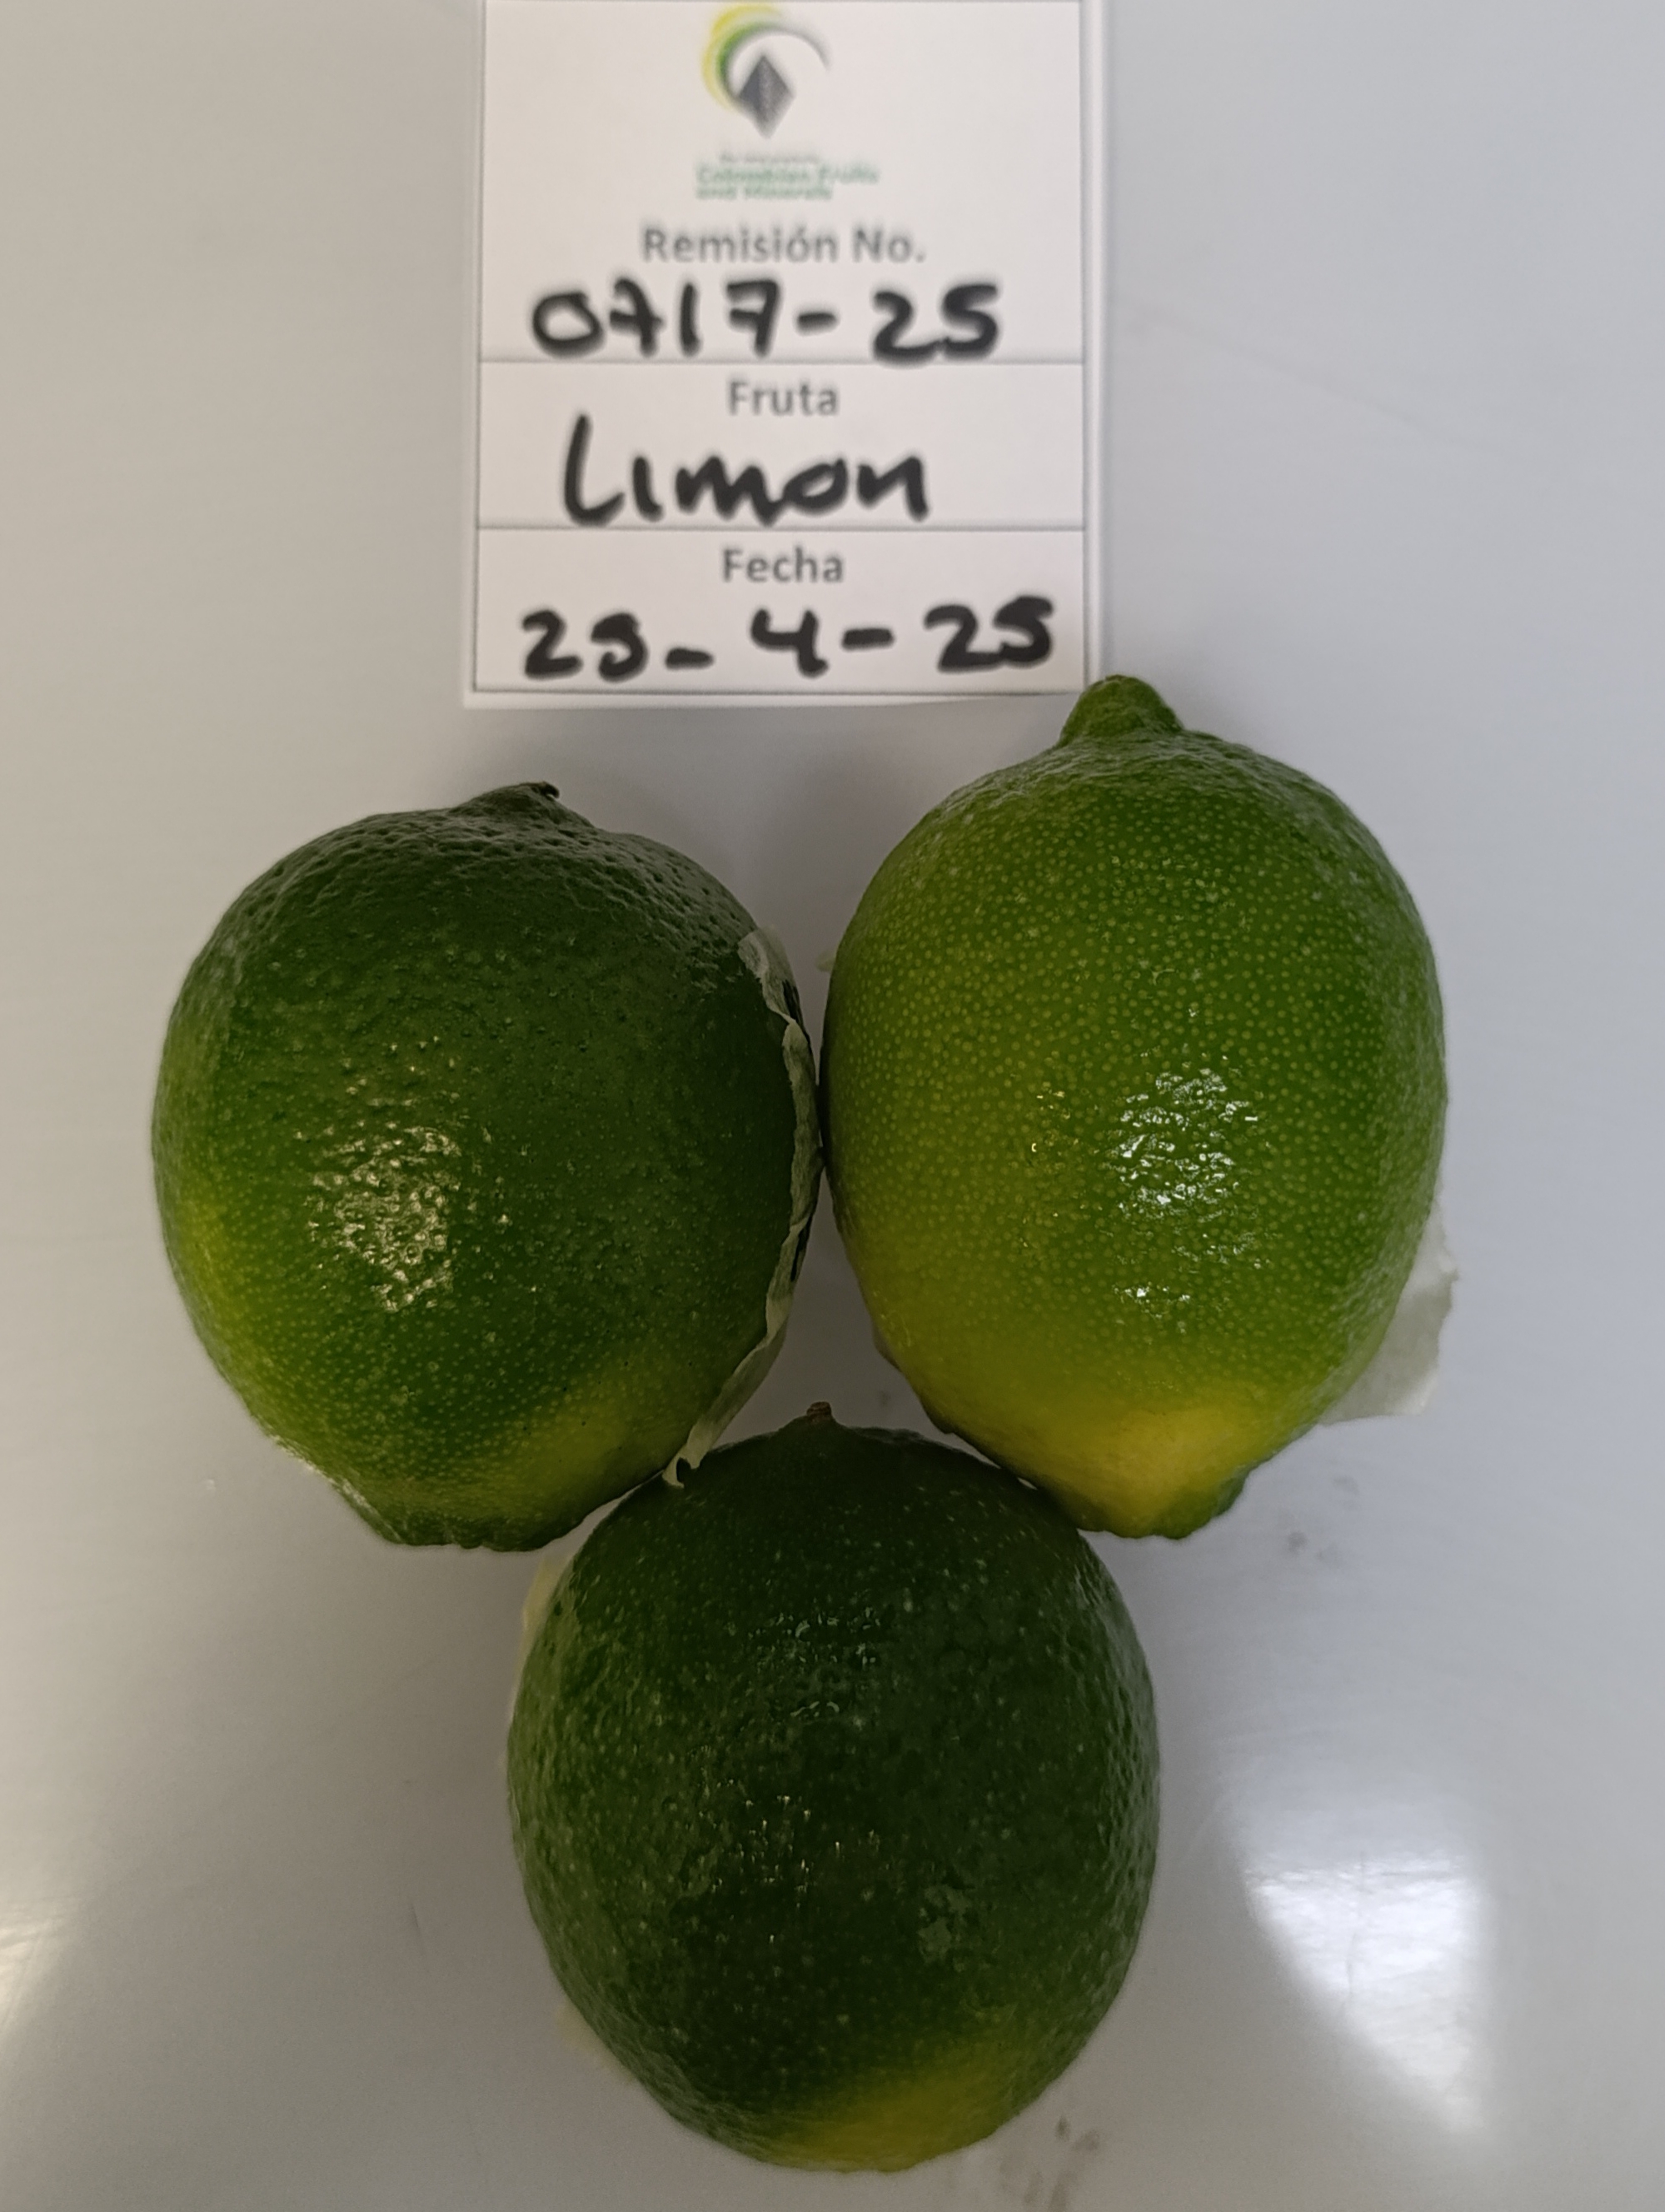 Colombian Fruits
and Minerals
Remisión No.
0717-25
Fruta
Limon
Fecha
23-4-25